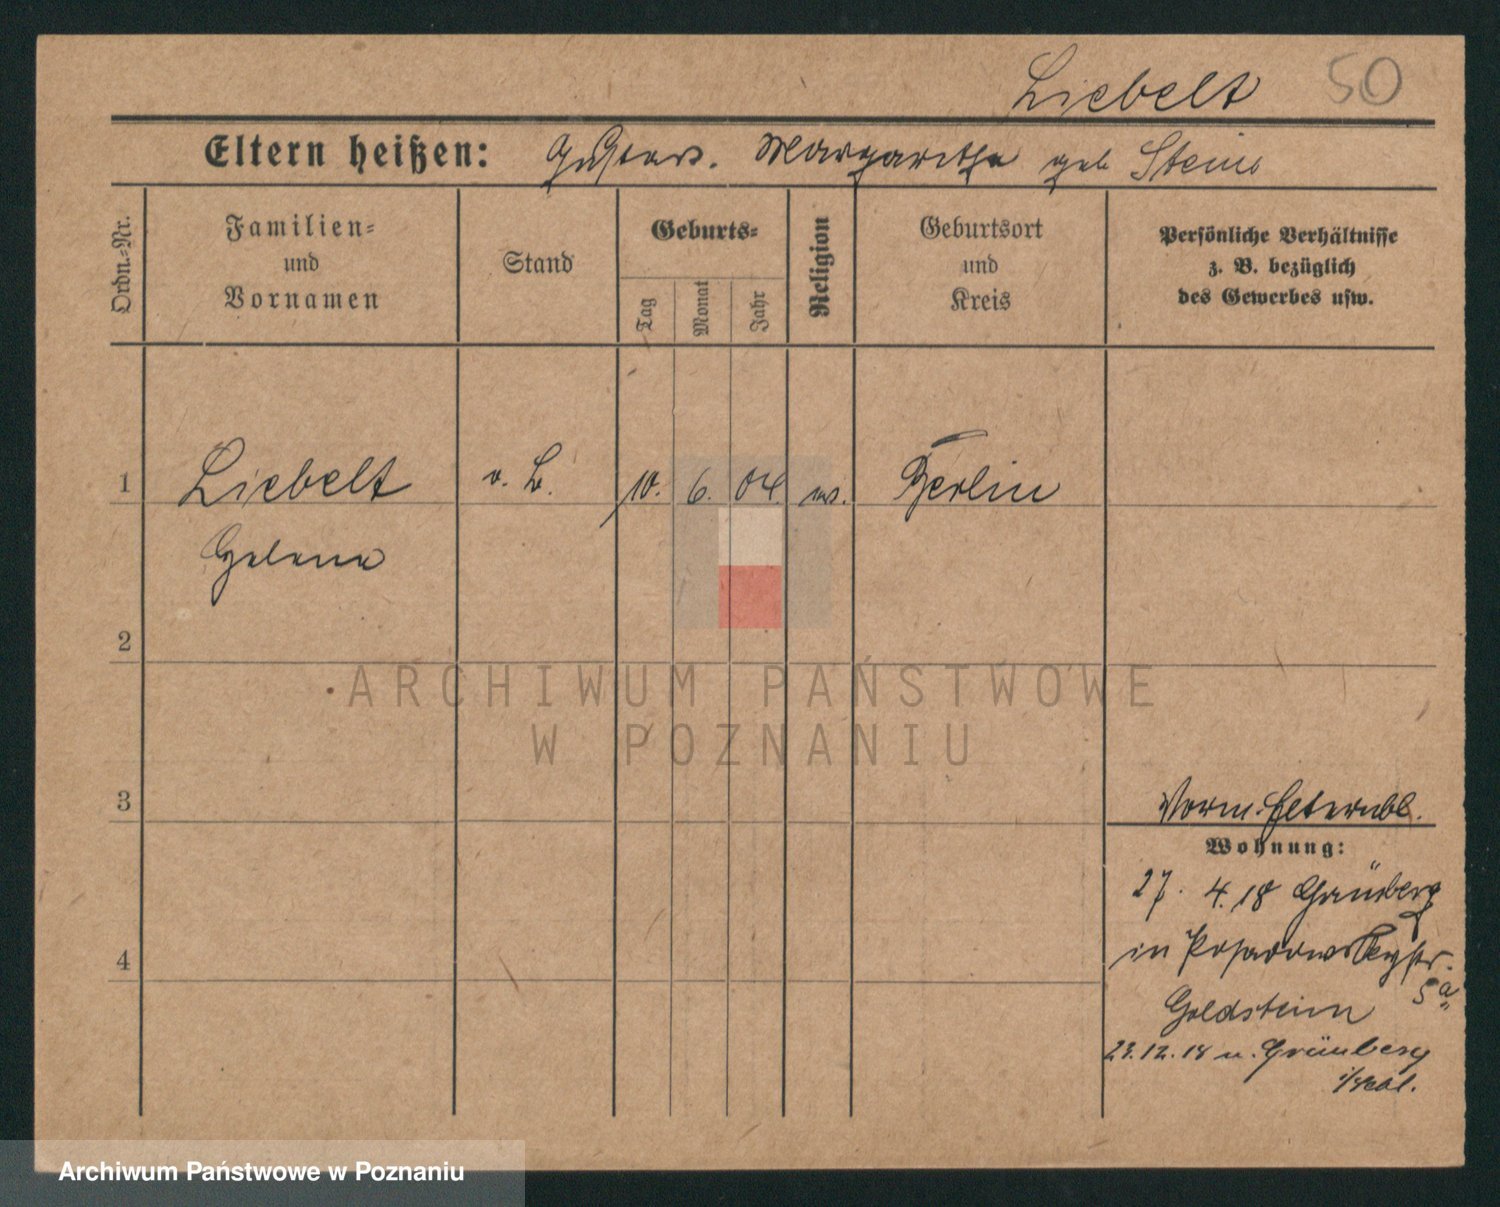 Liebelt 50
Eltern heißen: Gustav. Margarethe geb Stein
Ordn.-Nr.
Familien-
und
Vornamen
Stand
Geburts-
Tag
Monat
Jahr
Religion
Geburtsort
und
Kreis
Persönliche Verhältnisse
z. B. bezüglich
des Gewerbes usw.
1 Liebelt o. B. 10. 6. 04. Berlin
Helene
2
ARCHIWUM PAŃSTWOWE
W POZNANIU
3
Vorm. Elternbl.
Wohnung:
27. 4. 18 Grünberg
4
in Posadowskystr.
5a
Goldstein
23. 12. 18 n. Grünberg
i/Schl.
Archiwum Państwowe w Poznaniu